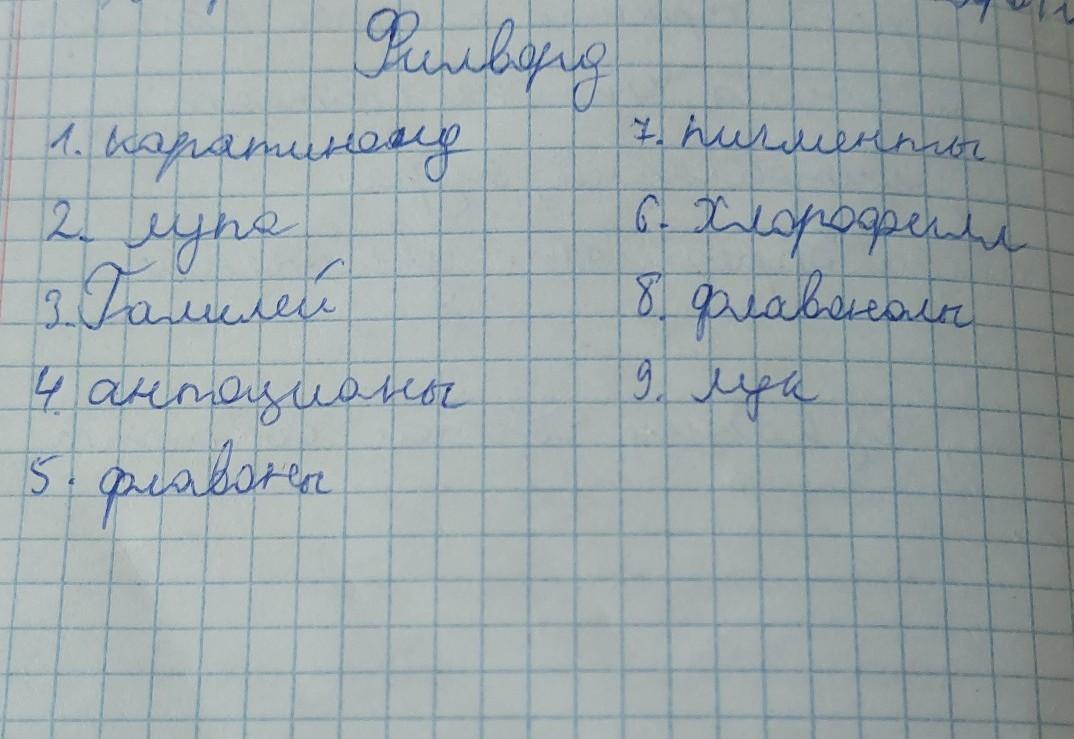 Филворд
1. каратиноид
2. лупа
3. Галилей
4. антоцианы
5. флавоны
7. пигменты
6. Хлорофилл
8. флавонолы
9. лук